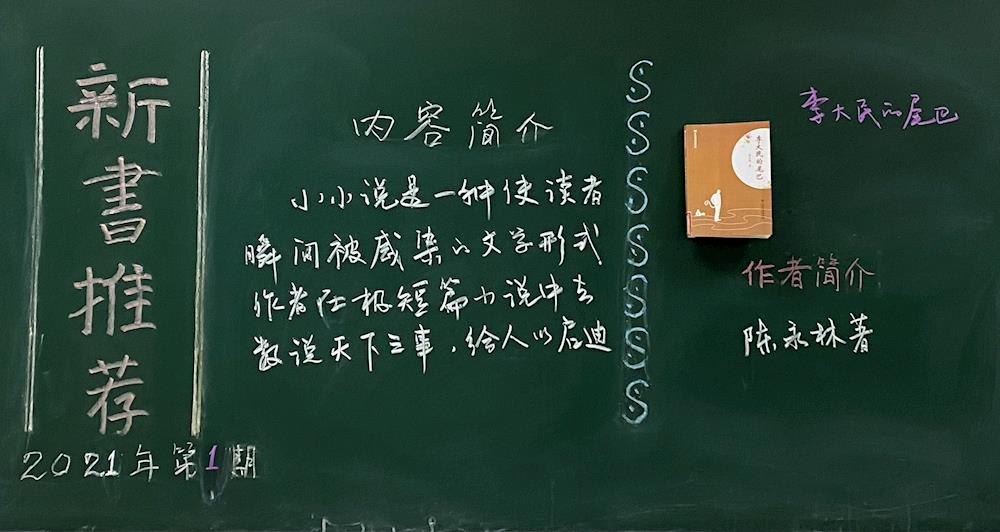 新書推荐
2021年第1期
内容简介
小小说是一种使读者
瞬间被感染的文字形式
作者在极短篇小说中去
数说天下之事，给人以启迪
李大民的尾巴
李大民的尾巴
作者简介
陈永林著